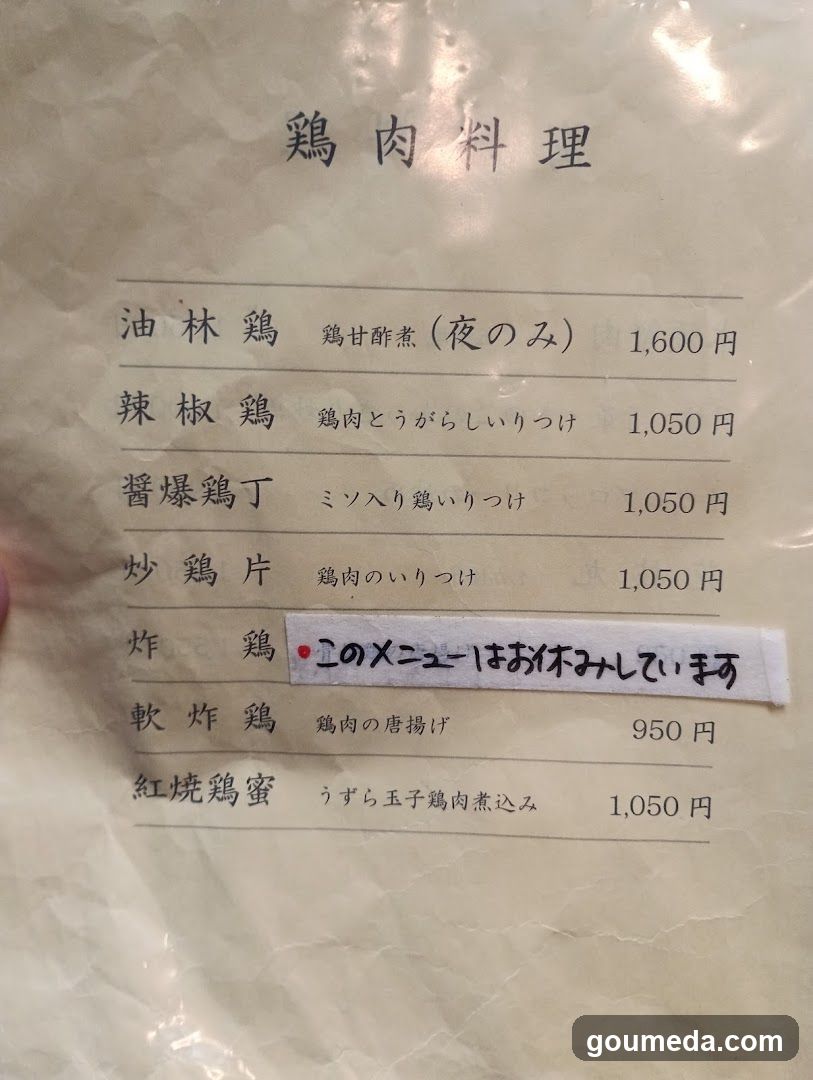 鶏肉料理
油林鶏 鶏甘酢煮 (夜のみ) 1,600 円
辣椒鶏 鶏肉とうがらしいりつけ 1,050 円
醤爆鶏丁 ミソ入り鶏いりつけ 1,050 円
炒鶏片 鶏肉のいりつけ 1,050 円
炸鶏 このメニューはお休みしています
軟炸鶏 鶏肉の唐揚げ 950 円
紅焼鶏蜜 うずら玉子鶏肉煮込み 1,050 円
goumeda.com